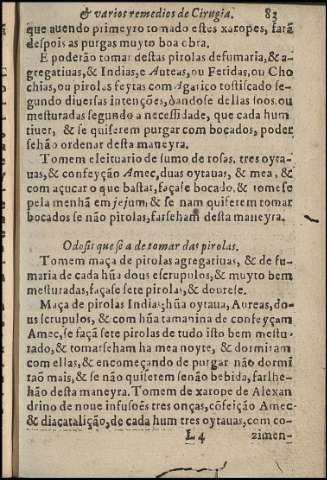 & varios remedios de Cirugia. 83
que auendo primeyro tomado estes xaropes, farã
despois as purgas muyto boa obra.
E poderão tomar destas pirolas defumaria, & a-
gregatiuas, & Indias, e Aureas, ou Fetidas, ou Cho
chias, ou pirolas feytas com Agarico tostiscado se-
gundo diuersas intenções, dandose dellas soos, ou
mesturadas segundo a necessidade, que cada hum
tiuer, & se quiserem purgar com bocados, poder
sehão ordenar desta maneyra.
Tomem eleituario de sumo de rosas, tres oyta-
uas, & confeyção Amec, duas oytauas, & mea, &
com açucar o que bastar, façase bocado, & tomese
pela menhã em jejum, & se nam quiserem tomar
bocados se não pirolas, farseham desta maneyra.
Odosis que se a de tomar das pirolas.
Tomem maça de pirolas agregatiuas, & de fu-
maria de cada hũa dous escrupulos, & muyto bem
mesturadas, façase sete pirolas, & dourese.
Maça de pirolas Indias, hũa oytaua, Aureas, do-
us scrupulos, & com hũa tamanina de confeyçam
Amec, se façã sete pirolas de tudo isto bem mestu-
rado, & tomarseham ha mea noyte, & dormiram
com ellas, & encomeçando de purgar não dormi
raõ mais, & se não quiserem senão bebida, farlhe-
hão desta maneyra. Tomem de xarope de Alexan
drino de noue infusoẽs tres onças, cõfeição Amec
& diacatalição, de cada hum tres oytauas, com co-
L 4 zimen-